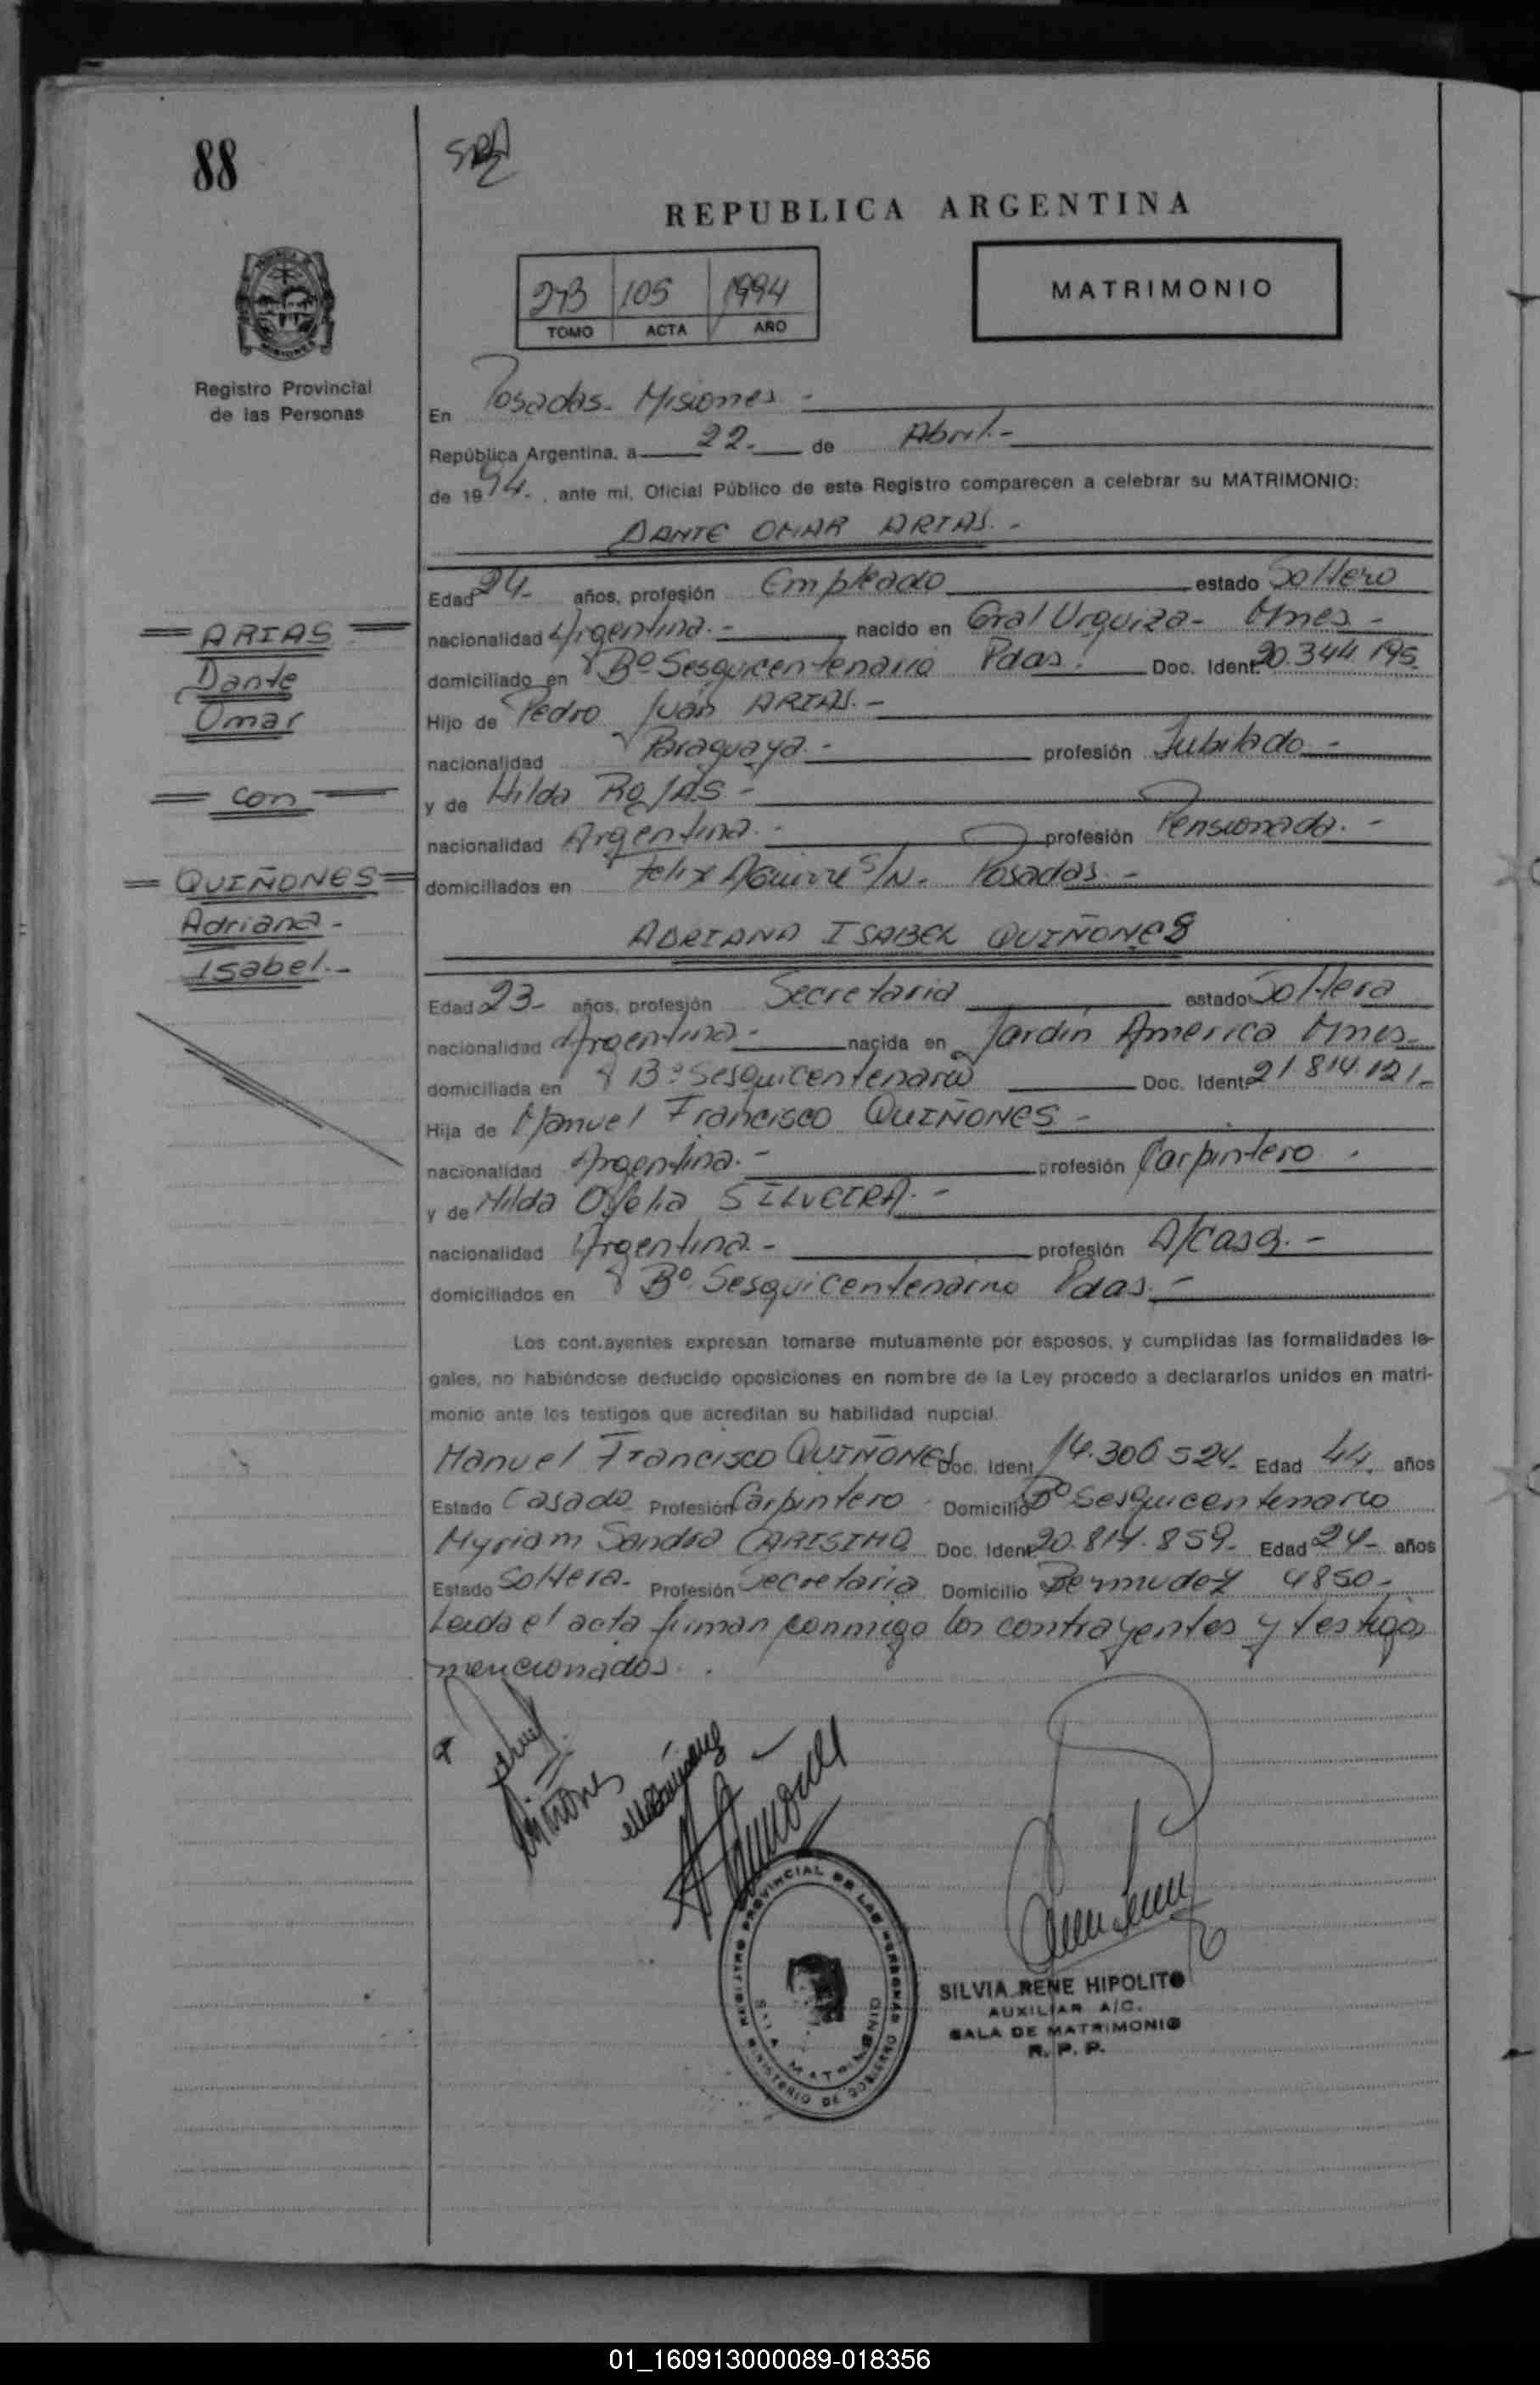 88
REPUBLICA ARGENTINA
273 105 1994
TOMO ACTA AÑO
MATRIMONIO
Registro Provincial
de las Personas
En Posadas- Misiones -
República Argentina, a 22- de Abril.-
de 1994-, ante mí, Oficial Público de este Registro comparecen a celebrar su MATRIMONIO:
DANTE OMAR ARIAS.-
Edad 24- años, profesión Empleado estado Soltero
nacionalidad Argentina.- nacido en Gral Urquiza- Mnes-
domiciliado en Bº Sesquicentenario Pdas. Doc. Ident. 20.344.195
Hijo de Pedro Juan ARIAS.-
nacionalidad Paraguaya.- profesión Jubilado-
y de Hilda ROJAS-
nacionalidad Argentina.- profesión Pensionada.-
domiciliados en Felix Aguirre S/N- Posadas.-
ADRIANA ISABEL QUIÑONES
Edad 23- años, profesión Secretaria estado Soltera
nacionalidad Argentina- nacida en Jardin America Mnes-
domiciliada en Bº Sesquicentenario Doc. Ident. 21.814.121-
Hija de Manuel Francisco QUIÑONES-
nacionalidad Argentina.- profesión Carpintero.
y de Hilda Ofelia SILVEIRA.-
nacionalidad Argentina- profesión A/casa.-
domiciliados en Bº Sesquicentenario Pdas.-
= ARIAS =
Dante
Omar
= con =
= QUIÑONES =
Adriana-
Isabel.-
Los cont.ayentes expresan tomarse mutuamente por esposos, y cumplidas las formalidades le-
gales, no habiéndose deducido oposiciones en nombre de la Ley procedo a declararlos unidos en matri-
monio ante los testigos que acreditan su habilidad nupcial.
Manuel Francisco QUIÑONES Doc. Ident. 14.306.524- Edad 44. años
Estado Casado Profesión Carpintero Domicilio Bº Sesquicentenario
Myriam Sandra CARISIMO Doc. Ident. 20.814.859- Edad 24- años
Estado Soltera- Profesión Secretaria Domicilio Bermudez 4850-
Leida el acta firman conmigo los contrayentes y testigos
mencionados.
Quiñones
REGISTRO PROVINCIAL DE LAS PERSONAS
MINISTERIO DE GOBIERNO
SALA MATRIMONIO
SILVIA RENE HIPOLITO
AUXILIAR A/C.
SALA DE MATRIMONIO
R. P. P.
01_160913000089-018356